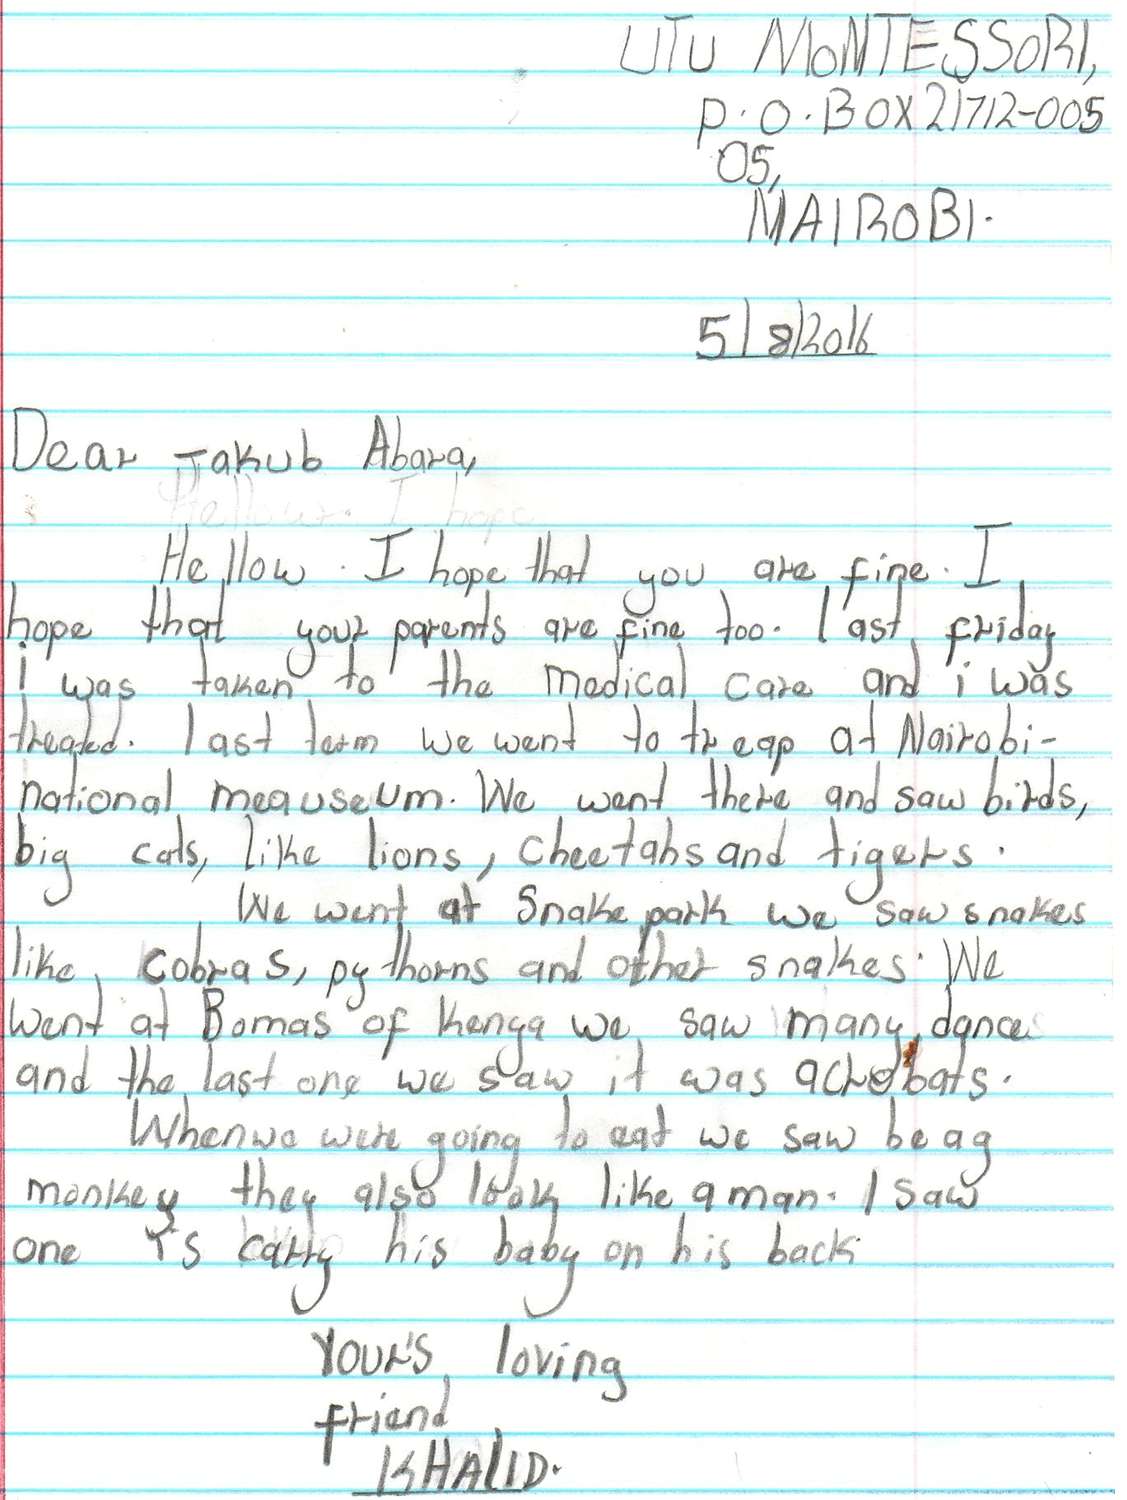 UTU MONTESSORI,
P.O.BOX 21712-005
05,
NAIROBI.
5/8/2016
Dear Jakub Abara,
Hellour. I hope
Hellow. I hope that you are fine. I
hope that your parents are fine too. last friday
i was taken to the medical care and i was
treated. last term we went to treap at Nairobi-
national meauseum. We went there and saw birds,
big cats, like lions, cheetahs and tigers.
We went at Snake park we saw snakes
like cobras, pythorns and other snakes. We
went at Bomas of kenya we saw many dance
and the last one we saw it was acrobats.
When we were going to eat we saw be ag
monkey they also look like a man. I saw
one is carry his baby on his back
Your's loving
friend
KHALID.